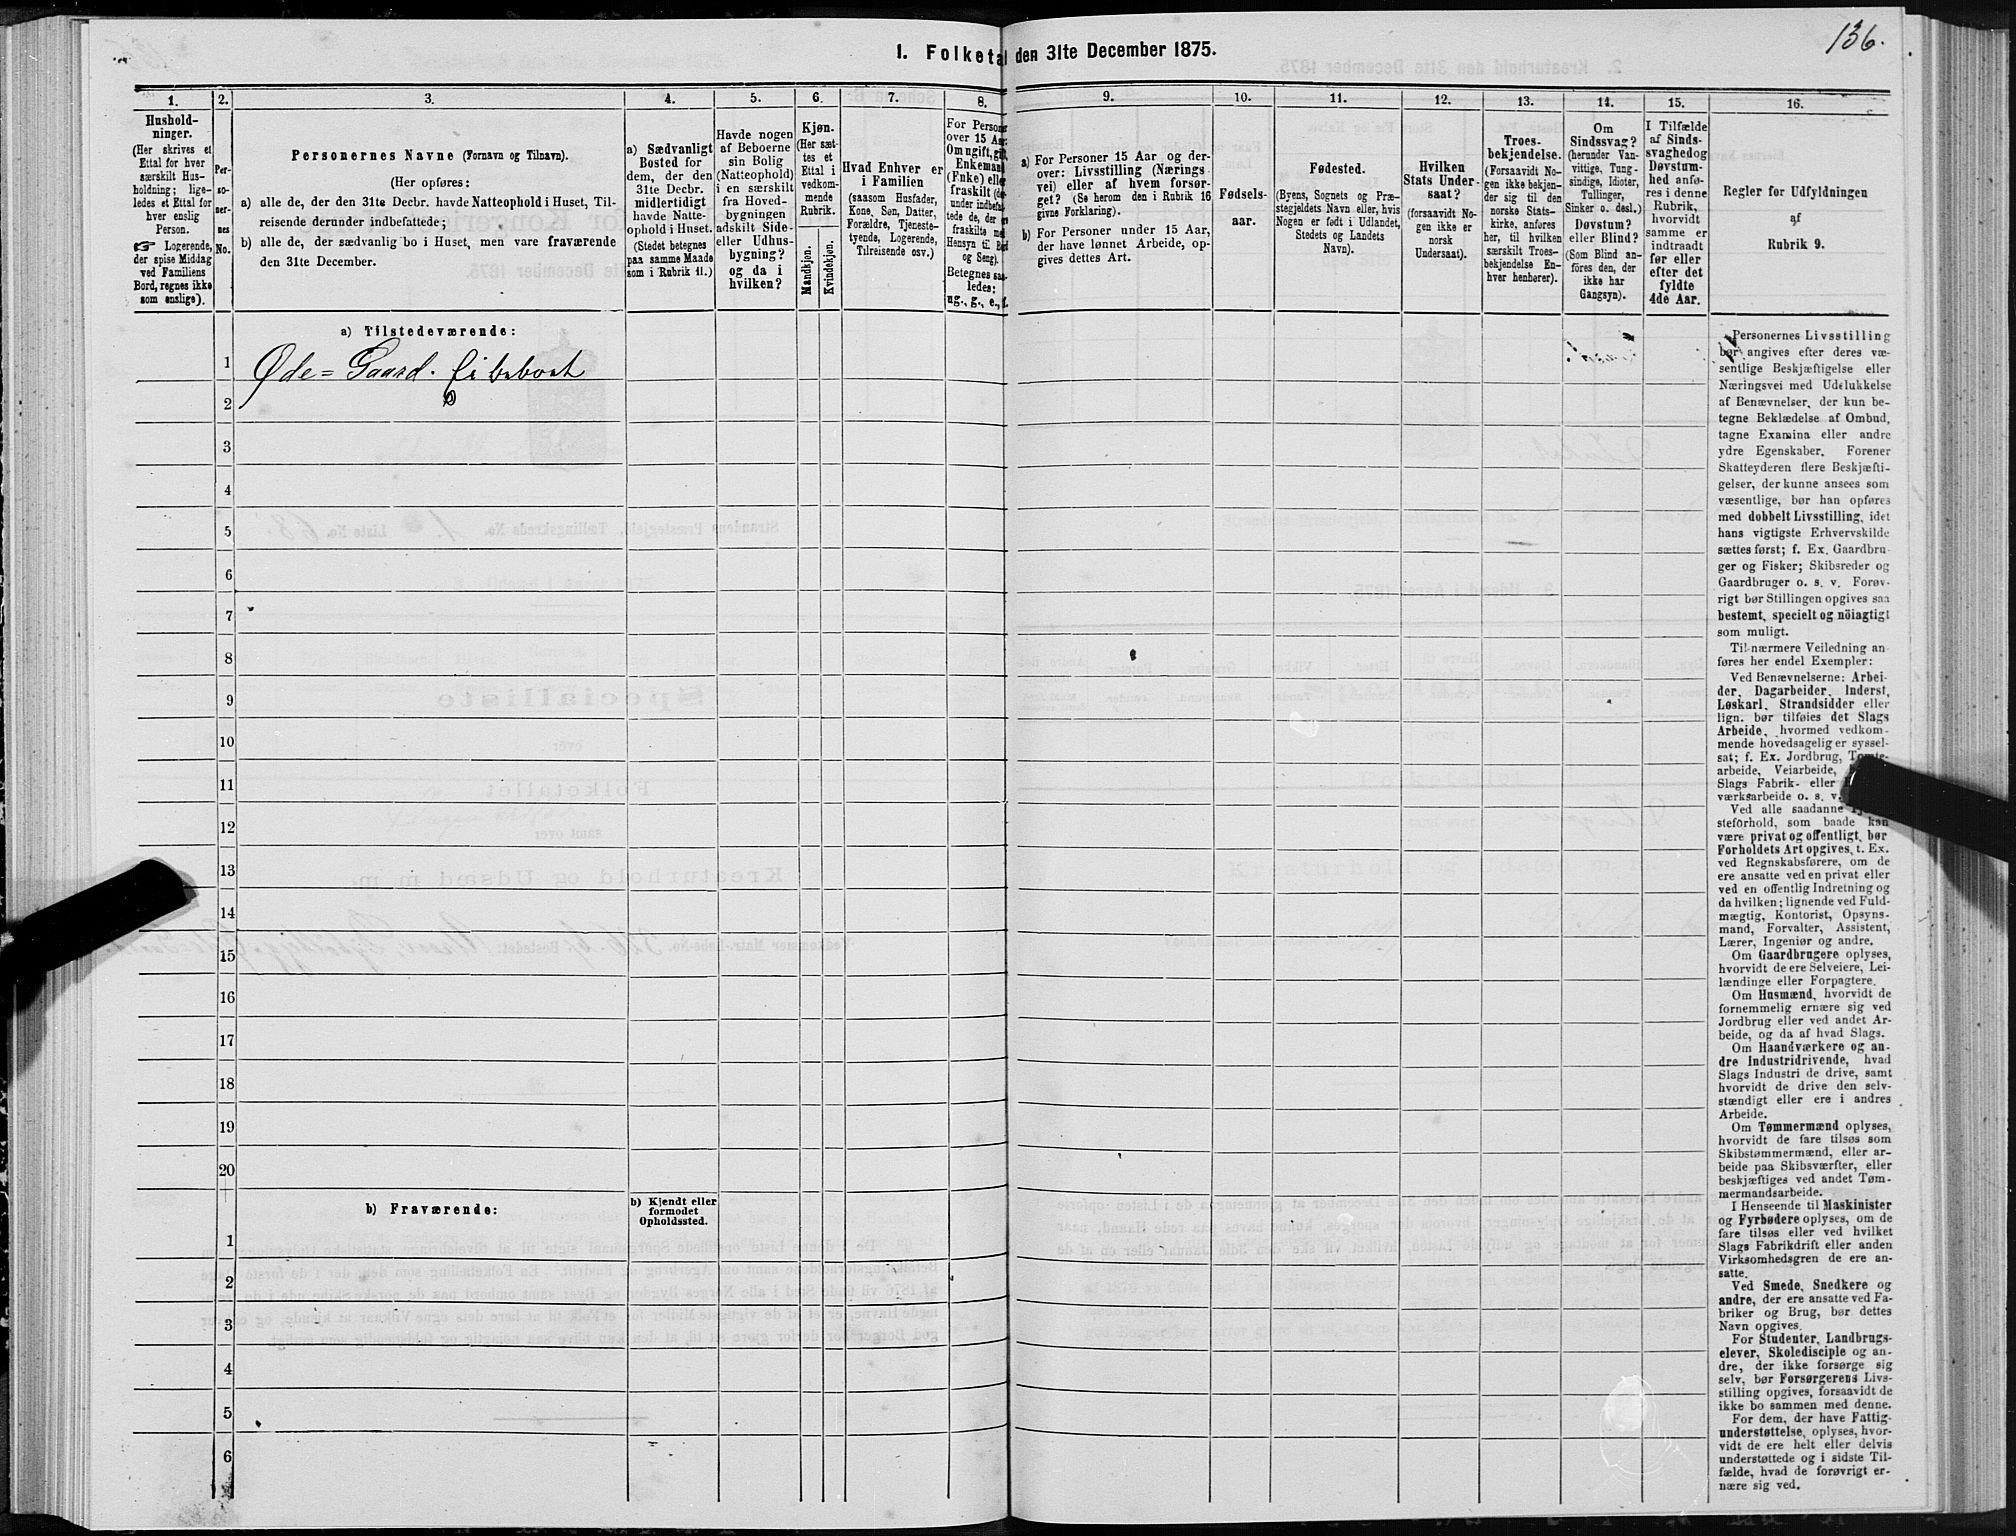 136.
I. Folketal den 31te December 1875.
1.
2.
3.
4.
5.
6.
7.
8.
9.
10.
11.
12.
13.
14.
15.
16.
Hushold-
ninger.
(Her skrives et
Ettal for hver
særskilt Hus-
holdning; lige-
ledes et Ettal for
hver enslig
Person.
☞ Logerende,
der spise Middag
ved Familiens
Bord, regnes ikke
som enslige).
Per-
so-
ner-
nes
No.
Personernes Navne (Fornavn og Tilnavn).
(Her opføres:
a) alle de, der den 31te Decbr. havde Natteophold i Huset, Til-
reisende derunder indbefattede;
b) alle de, der sædvanlig bo i Huset, men vare fraværende
den 31te December.
a) Sædvanligt
Bosted for
dem, der den
31te Decbr.
midlertidigt
havde Natte-
ophold i Huset.
(Stedet betegnes
paa samme Maade
som i Rubrik 11.)
Havde nogen
af Beboerne
sin Bolig
(Natteophold)
i en særskilt
fra Hoved-
bygningen
adskilt Side-
eller Udhus-
bygning?
og da i
hvilken?
Kjøn.
(Her sæt-
tes et
Ettal i
vedkom-
mende
Rubrik.
Mandkjøn.
Kvindekjøn.
Hvad Enhver er
i Familien
(saasom Husfader,
Kone, Søn, Datter,
Forældre, Tjeneste-
tyende, Logerende,
Tilreisende osv.)
For Persone
over 15 Aa
Om ugift, gif
Enkemand
(Enke) elle
fraskilt (de
under indbefat
tede de, der
fraskilte
Hensyn til B
og Seng).
Betegnes saa-
ledes:
ug., g., e., f.
a) For Personer 15 Aar og der-
over: Livsstilling (Nærings-
vei) eller af hvem forsør-
get? (Se herom den i Rubrik 16
givne Forklaring).
b) For Personer under 15 Aar,
der have lønnet Arbeide, op-
gives dettes Art.
Fødsels-
aar.
Fødested.
(Byens, Sognets og Præ-
stegjeldets Navn eller, hvis
Nogen er født i Udlandet,
Stedets og Landets
Navn).
Hvilken
Stats Under-
saat?
(forsaavidt No-
gen ikke er
norsk
Undersaat).
Troes-
bekjendelse.
(Forsaavidt No-
gen ikke bekjen-
der sig til den
norske Stats-
kirke, anføres
her, til hvilken
særskilt Troes-
bekjendelse En-
hver henhører).
Om
Sindssvag?
(herunder Van-
vittige, Tung-
sindige, Idioter,
Tullinger,
Sinker o. desl.)
Døvstum?
eller Blind?
(Som Blind an-
føres den, der
ikke har
Gangsyn).
I Tilfælde
af Sinds-
svaghed og
Døvstum-
hed anfø-
res i denne
Rubrik,
hvorvidt
samme er
indtraadt
før eller
efter det
fyldte
4de Aar.
Regler for Udfyldningen
af
Rubrik 9.
a) Tilstedeværende:
1
Øde=Gaard. Ei beboet
2
3
4
5
6
7
8
9
10
11
12
13
14
15
16
17
18
19
20
b) Fraværende:
b) Kjendt eller
formodet
Opholdssted.
1
2
3
4
5
6
Personernes Livsstilling
bør angives efter deres væ-
sentlige Beskjæftigelse eller
Næringsvei med Udelukkelse
af Benævnelser, der kun be-
tegne Beklædelse af Ombud,
tagne Examina eller andre
ydre Egenskaber. Forener
Skatteyderen flere Beskjæfti-
gelser, der kunne ansees som
væsentlige, bør han opføres
med dobbelt Livsstilling, idet
hans vigtigste Erhvervskilde
sættes først; f. Ex. Gaardbru-
ger og Fisker; Skibsreder og
Gaardbruger o. s. v. Forøv-
rigt bør Stillingen opgives saa
bestemt, specielt og nöiagtigt
som muligt.
Til nærmere Veiledning an-
føres her endel Exempler:
Ved Benævnelserne: Arbei-
der, Dagarbeider, Inderst,
Løskarl, Strandsidder eller
lign. bør tilføies det Slags
Arbeide, hvormed vedkom-
mende hovedsagelig er syssel-
sat; f. Ex. Jordbrug, Tomte-
arbeide, Veiarbeide,
Slags Fabrik- eller
værksarbeide o. s. v.
Ved alle saadanne
steforhold, som baade kan
være privat og offentligt, bør
Forholdets Art opgives, t. Ex.
ved Regnskabsførere, om de
ere ansatte ved en privat eller
ved en offentlig Indretning og
da hvilken; lignende ved Fuld-
mægtig, Kontorist, Opsyns-
mand, Forvalter, Assistent,
Lærer, Ingeniør og andre.
Om Gaardbrugere oplyses,
hvorvidt de ere Selveiere, Lei-
lændinge eller Forpagtere.
Om Husmænd, hvorvidt de
fornemmelig ernære sig ved
Jordbrug eller ved andet Ar-
beide, og da af hvad Slags.
Om Haandværkere og an-
dre Industridrivende, hvad
Slags Industri de drive, samt
hvorvidt de drive den selv-
stændigt eller ere i andres
Arbeide.
Om Tømmermænd oplyses,
hvorvidt de fare tilsøs som
Skibstømmermænd, eller ar-
beide paa Skibsværfter, eller
beskjæftiges ved andet Tøm-
mermandsarbeide.
I Henseende til Maskinister
og Fyrbødere oplyses, om de
fare tilsøs eller ved hvilket
Slags Fabrikdrift eller anden
Virksomhedsgren de ere an-
satte.
Ved Smede, Snedkere og
andre, der ere ansatte ved Fa-
briker og Brug, bør dettes
Navn opgives.
For Studenter, Landbrugs-
elever, Skoledisciple og an-
dre, der ikke forsørge sig
selv, bør Forsørgerens Livs-
stilling opgives, forsaavidt de
ikke bo sammen med denne.
For dem, der have Fattig-
understøttelse, oplyses, hvor-
vidt de ere helt eller delvis
understøttede og i sidste Til-
fælde, hvad de forøvrigt er-
nære sig ved.